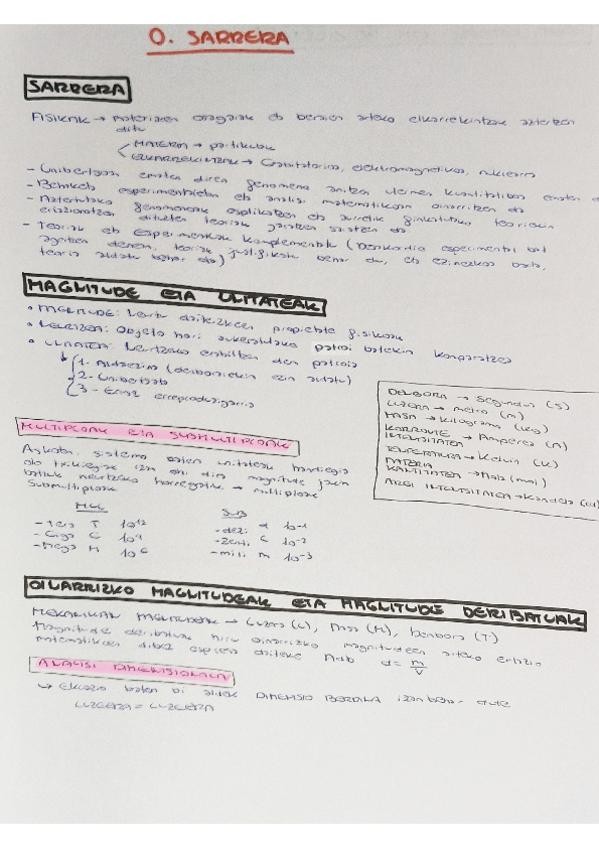 0. SARRERA
SARRERA
FISIKAK → Materiaren osagaiak eta beraien arteko elkarrekintzak aztertzen
ditu
MATERIA → partikulak
ELKARREKINTZAK → Grabitatorioa, elektromagnetikoa, nuklearra
- Unibertsoan ematen diren fenomeno anitzen ulermen kuantitatiboa ematen d
- Behaketa esperimentaletan eta analisi matematikoan oinarritzen da
- Naturako fenomenoak esplikatzen eta aurretik teorien
dituzten teoriak garatzen saiatzen da.
- Teoriak eta esperimentuak komplementak (Desakordio esperimentu bat
agertzen denean, teoria justifikatu behar da, eta ezinezkoa bada,
teoria aldatu behar da)
MAGNITUDE ETA UNITATEAK
• MAGNITUDE: Neurtu daitezkeen propietate fisikoak
• NEURTZEA: Objetu hori aukeratutako patroi batekin konparatzea
• UNITATEA: Neurtzeko erabiltzen den patroia
1. Aldaezina (denborarekin ezin aldatu)
2- Unibertsala
3- Erraz erreproduzigarria
DENBORA → Segundu (s)
LUZERA → metro (m)
MASA → kilogramo (kg)
KORRONTE → Amperea (A)
INTENTSITATEA
TENPERATURA → Kelvin (K)
MATERIA
KANTITATEA → Mola (mol)
ARGI INTENTSITATEA → Kandela (cd
MULTIPLOAK ETA SUBMULTIPLOAK
Askotan, sistema baten unitateak handiegia
edo txikiegiak izan ohi dira magnitude jakin
batzuk neurtzeko horregatik → multiploak
Submultiploak
MUL
- Tera T 10¹²
- Giga G 10⁹
- Mega M 10⁶
SUB
- dezi d 10⁻¹
- zenti c 10⁻²
- mili m 10⁻³
OINARRIZKO MAGNITUDEAK ETA MAGNITUDE DERIBATUAK
MEKANIKAN MAGNITUDEAK → Luzera (L), Masa (M), Denbora (T)
Magnitude deribatuak hiru oinarrizko magnitudeen arteko erlazio
matematikoen bidez espresa daitezke Adb d = m/V
ANALISI DIMENTSIONALA
↳ Ekuazio baten bi aldeek DIMENSIO BERDINA izan behar dute
LUZERA = LUZERA